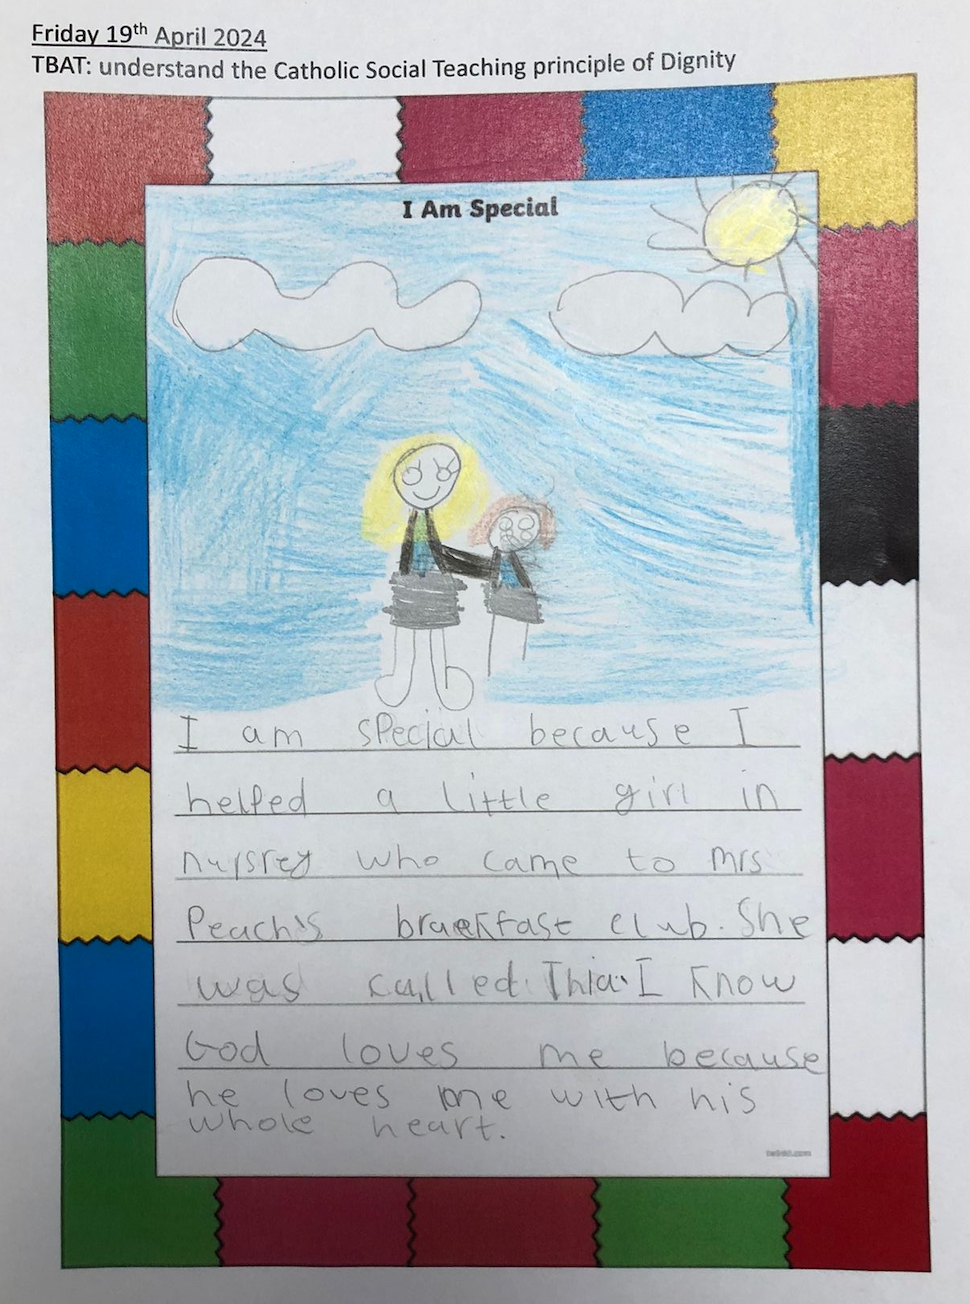 Friday 19th April 2024
TBAT: understand the Catholic Social Teaching principle of Dignity
I Am Special
I am special because I
helped a little girl in
nursrey who came to mrs
Peach's braekfast club. She
was called Thia. I know
God loves me because
he loves me with his
whole heart.